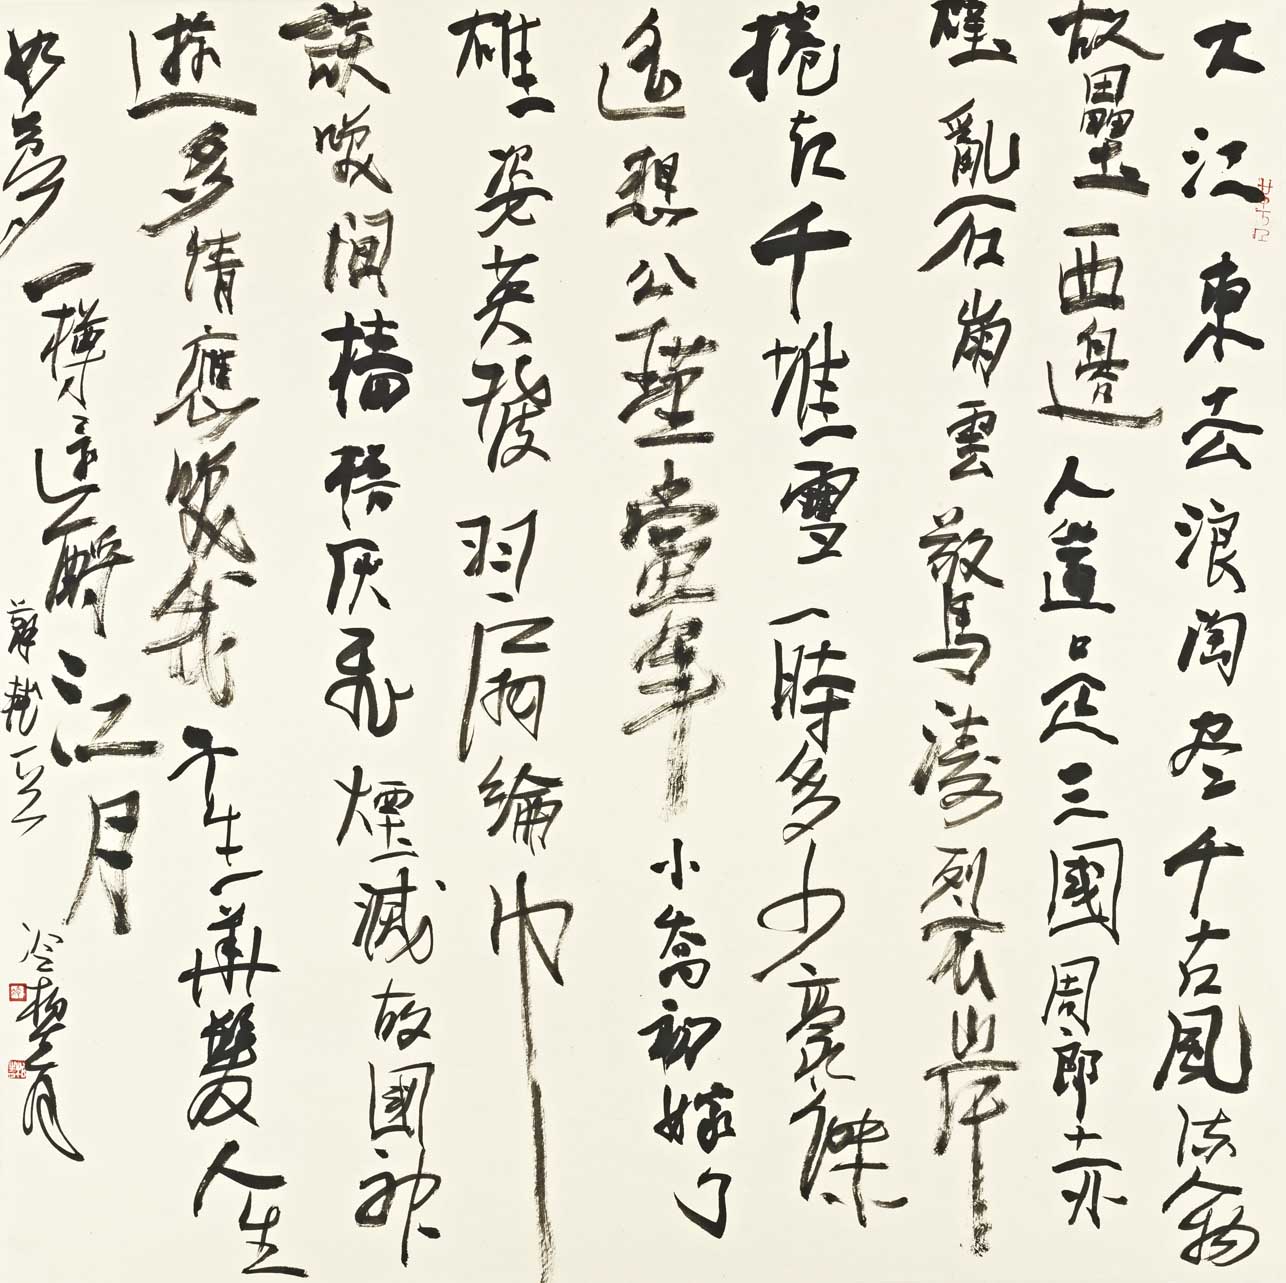 大江東去浪淘尽千古風流人物
故壘西邊人道是三國周郎赤
壁亂石崩雲驚濤裂岸
捲起千堆雪一時多少豪傑
遙想公瑾當年小喬初嫁了
雄姿英發羽扇綸巾
談笑間檣櫓灰飛煙滅故國神
遊多情應笑我早生華髮人生
如夢一樽還酹江月
蘇軾